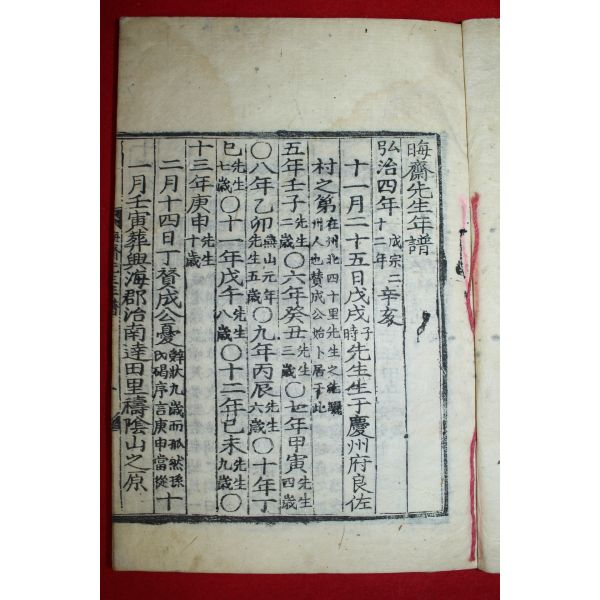 晦齋先生年譜
弘治四年 成宗二十二年 辛亥
十一月二十五日戊戌 子時 先生生于慶州府良佐
村之第 在州北四十里先生之 州人也贊成公始卜居于此
五年壬子 先生二歲 〇六年癸丑 三歲 〇七年甲寅 先生四歲
〇八年乙卯 燕山元年先生五歲 〇九年丙辰 先生六歲 〇十年丁
巳 先生七歲 〇十一年戊午 先生八歲 〇十二年己未 先生九歲 〇
十三年庚申 先生十歲
二月十四日丁贊成公憂 狀九歲而 然孫氏碣序言庚申當從 十
一月壬寅葬興海郡治南達田里禱陰山之原